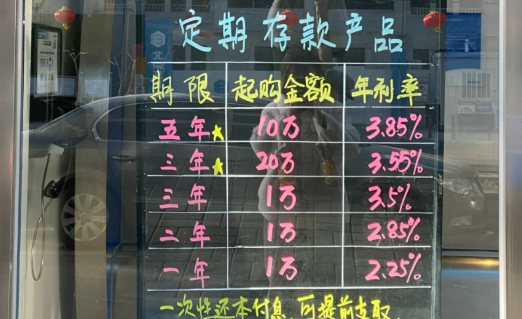 定期存款产品
期限 起购金额 年利率
五年★ 10万 3.85%
三年★ 20万 3.55%
三年 1万 3.5%
二年 1万 2.85%
一年 1万 2.25%
一次性还本付息,可提前支取.